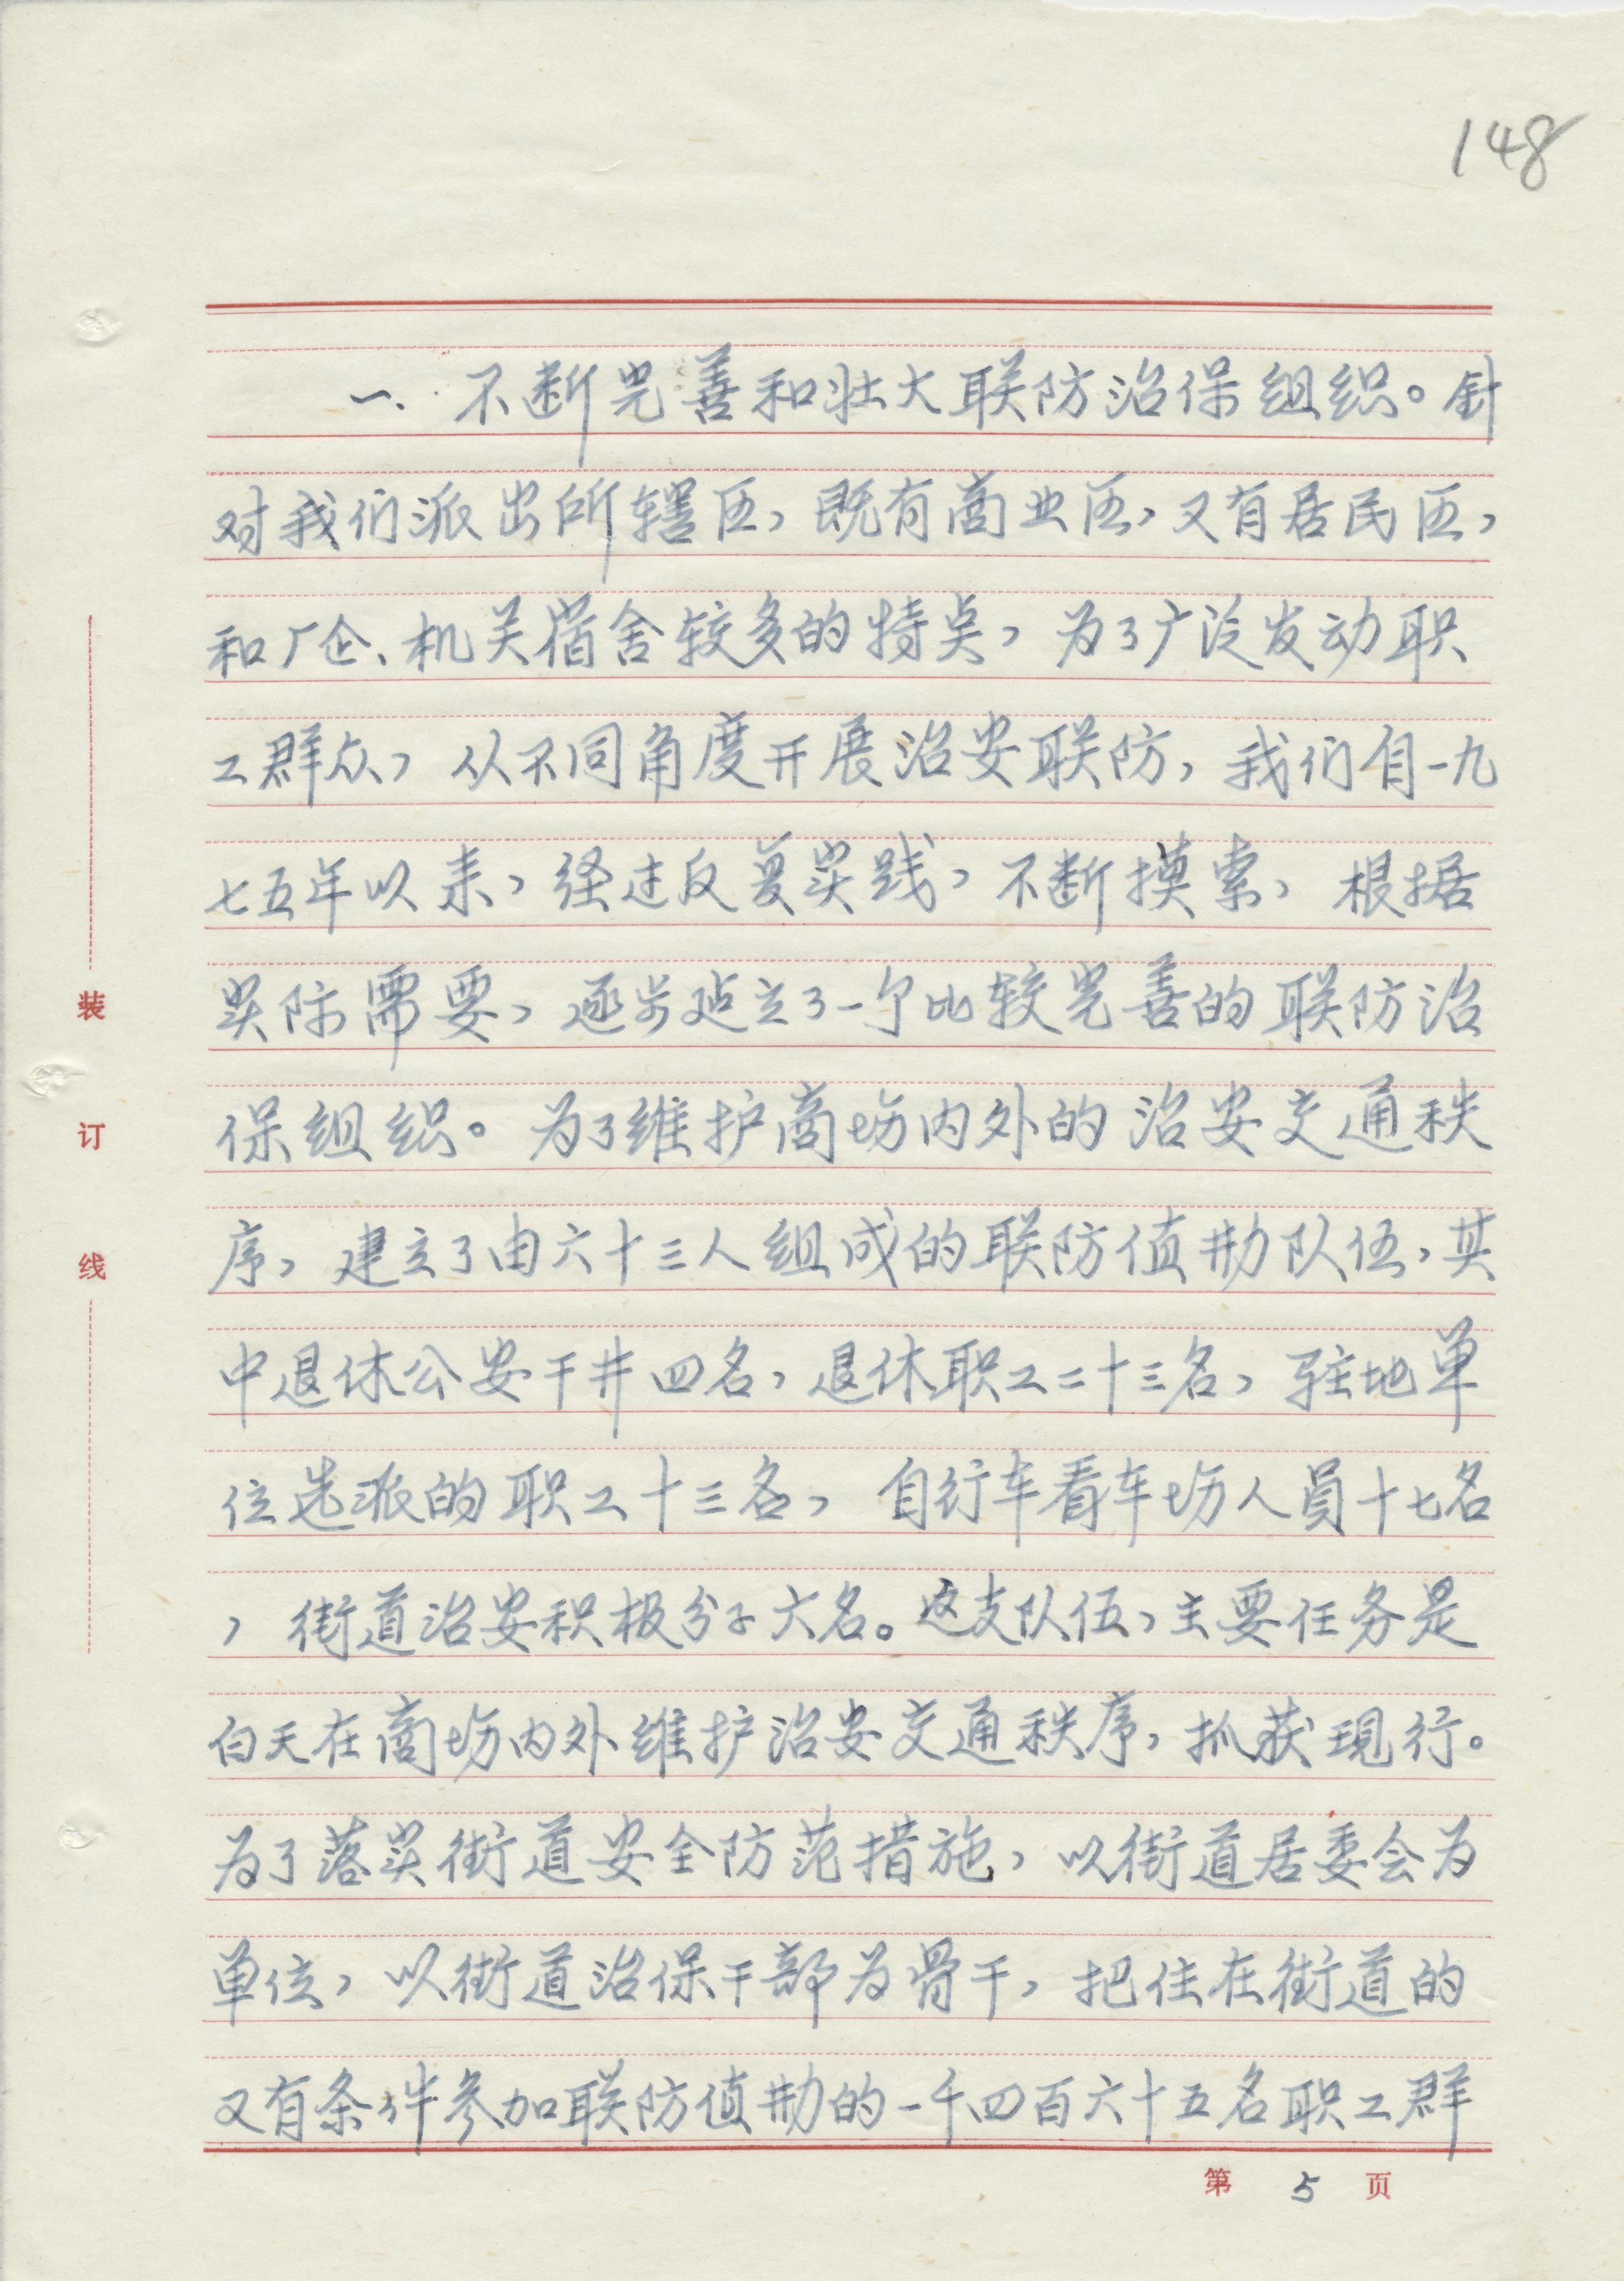 148
一、不断完善和壮大联防治保组织。针
对我们派出所辖区，既有商业区，又有居民区，
和厂企、机关宿舍较多的特点，为了广泛发动职
工群众，从不同角度开展治安联防，我们自一九
七五年以来，经过反复实践，不断摸索，根据
实际需要，逐步建立了一个比较完善的联防治
保组织。为了维护商场内外的治安交通秩
序，建立了由六十三人组成的联防值勤队伍，其
中退休公安干井四名，退休职工二十三名，驻地单
位选派的职工十三名，自行车看车场人员十七名
，街道治安积极分子六名。这支队伍，主要任务是
白天在商场内外维护治安交通秩序，抓获现行。
为了落实街道安全防范措施，以街道居委会为
单位，以街道治保干部为骨干，把住在街道的
又有条件参加联防值勤的一千四百六十五名职工群
装
订
线
第 5 页